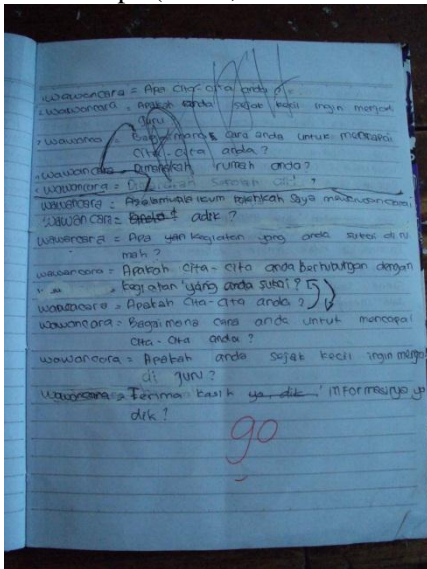 wawancara = Apa cita-cita anda
wawancara = Apakah anda sejak kecil ingin menjadi
guru
wawancara = Bagaimana cara anda untuk mencapai
cita-cita anda ?
wawancara = Dimanakah rumah anda ?
wawancara =
wawancara = Assalamualaikum bolehkah saya mewawancarai
wawancara = adik ?
wawancara = Apa kegiatan yang anda sukai diru
mah ?
wawancara = Apakah cita-cita anda berhubungan dengan
kegiatan yang anda sukai ?
wawancara = Apakah cita-cita anda ?
wawancara = Bagaimana cara anda untuk mencapai
cita-cita anda ?
wawancara = Apakah anda sejak kecil ingin
di guru ?
wawancara = Terima kasih ya dik informasinya ya
dik ?
90